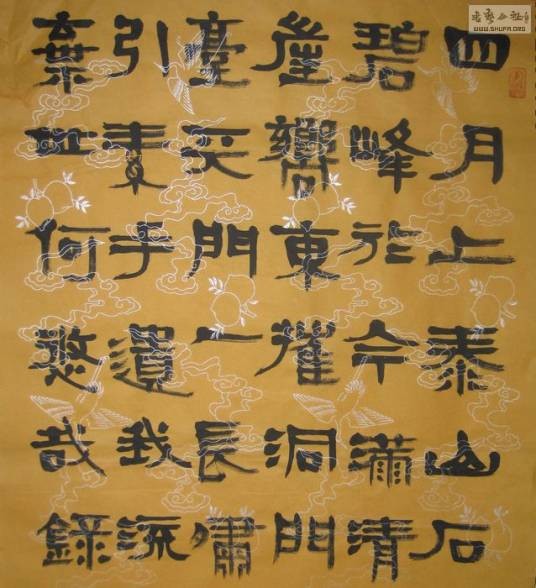 四月上泰山石
碧峰於今滿清
崖響東崔洞門
臺天門一長嘯
引素手遺我流
棄世何悠哉錄
WWW.SHUFA.ORG